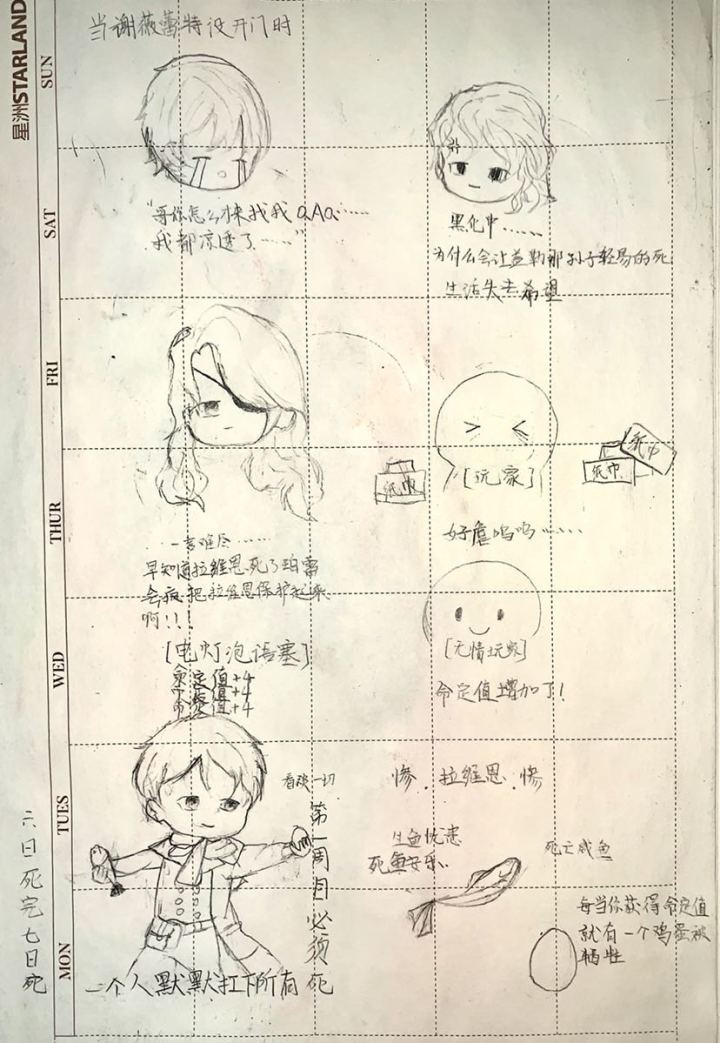 星洲STARLAND
SUN
SAT
FRI
THUR
WED
TUES
MON
当谢薇蕾特没开门时
"哥你怎么才来找我QAQ……
我都凉透了……"
黑化中……
为什么会让益勒那孙子轻易的死
生活失去希望
纸巾
[玩家]
纸巾
纸巾
一言难尽……
早知道拉维恩死了珀雷
会疯把拉维恩保护起来
啊!!!
好虐呜呜……
[电灯泡语塞]
命定值+4
命定值+4
命定值+4
[无情玩家]
命定值增加了!
看破一切
第一周目必须死
一个人默默扛下所有
惨.拉维恩.惨
生鱼忧患
死鱼安乐..
死亡咸鱼
每当你获得命定值
就有一个鸡蛋被
牺牲
六日死完七日死